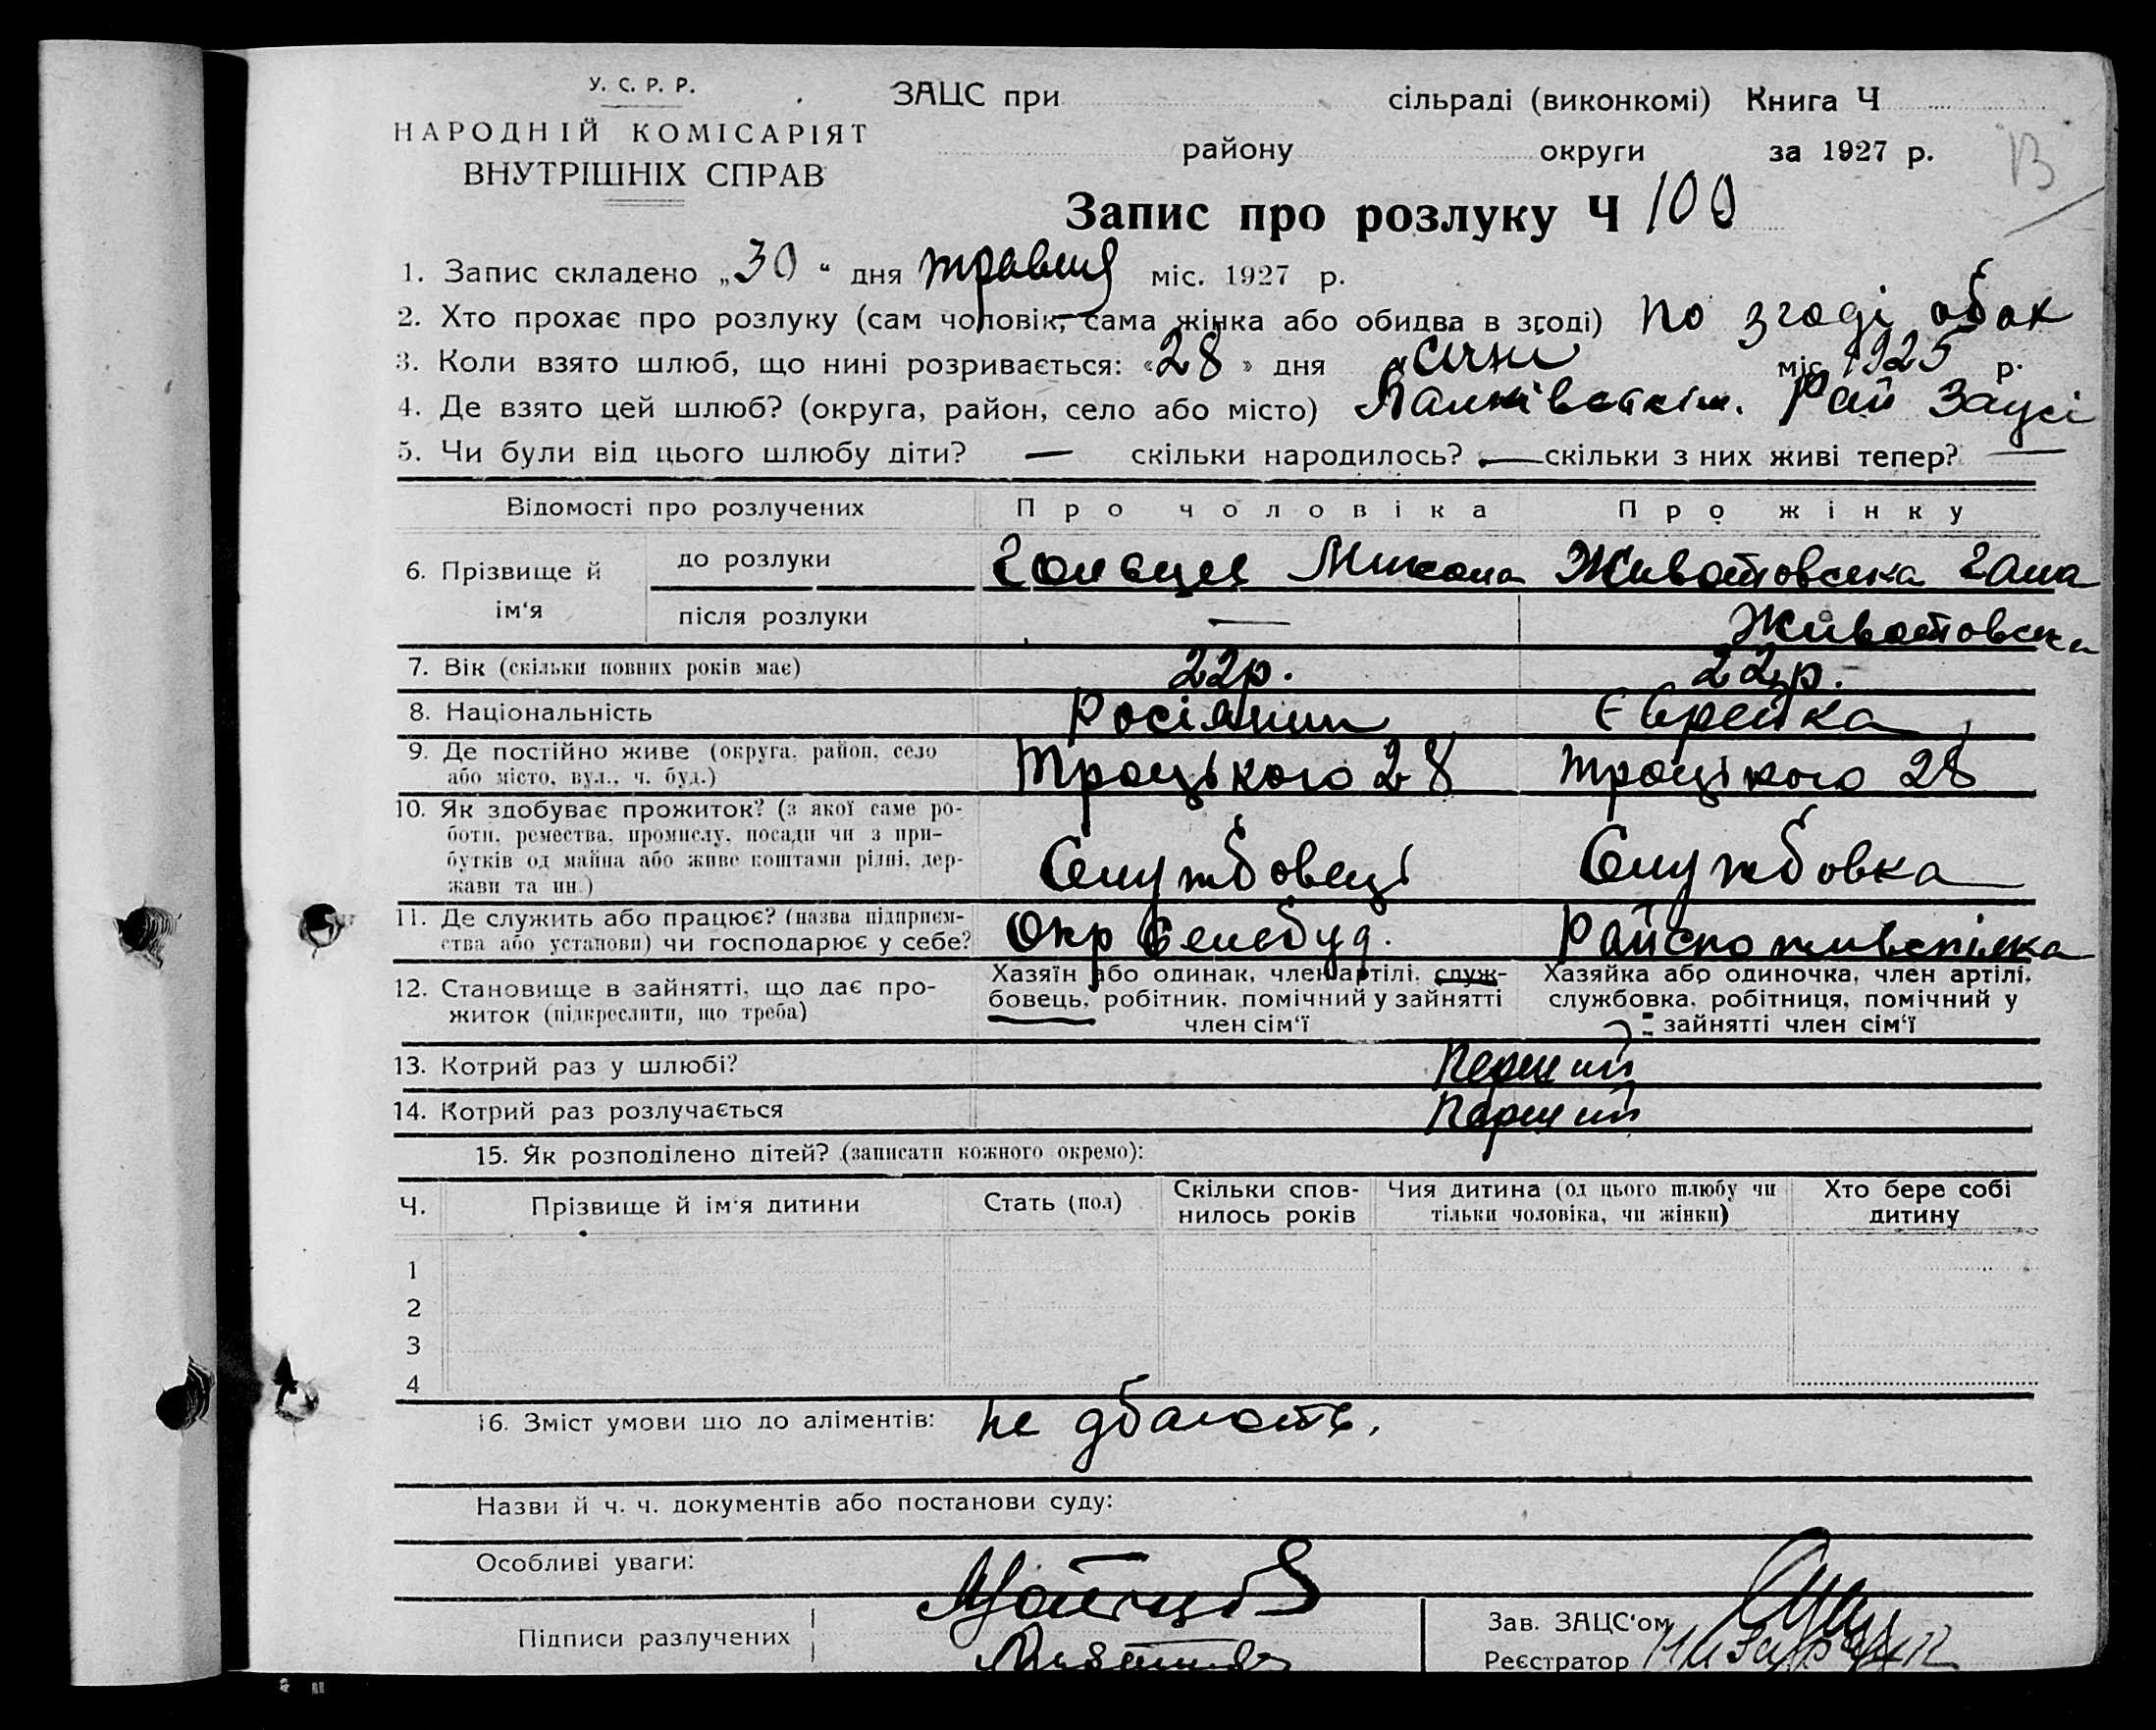 У. С. Р. Р.
НАРОДНІЙ КОМІСАРІЯТ
ВНУТРІШНІХ СПРАВ
ЗАЦС при сільраді (виконкомі) Книга Ч
району округи за 1927 р.
Запис про розлуку Ч 100
1. Запис складено „30“ дня травня міс. 1927 р.
2. Хто прохає про розлуку (сам чоловік, сама жінка або обидва в згоді) по згоді обох
3. Коли взято шлюб, що нині розривається: «28» дня січня міс. 1925 р.
4. Де взято цей шлюб? (округа, район, село або місто) Рай Загсі
5. Чи були від цього шлюбу діти? — скільки народилось? — скільки з них живі тепер? —
Відомості про розлучених Про чоловіка Про жінку
6. Прізвище й ім‘я до розлуки Микола Животовська Гана
після розлуки — Животовська
7. Вік (скільки повних років має) 22р. 22р.
8. Національність Росіянин Єврейка
9. Де постійно живе (округа, район, село або місто, вул., ч. буд.) Троцького 28 Троцького 28
10. Як здобуває прожиток? (з якої саме ро-
боти, ремества, промислу, посади чи з при-
бутків од майна або живе коштами рідні, дер-
жави та ин.) Службовець Службовка
11. Де служить або працює? (назва підприєм-
ства або установи) чи господарює у себе? Окр Райспоживспілка
12. Становище в зайнятті, що дає про-
житок (підкреслити, що треба)
Хазяїн або одинак, член артілі, служ-
бовець, робітник, помічний у зайнятті
член сім‘ї
Хазяйка або одиночка, член артілі,
службовка, робітниця, помічний у
зайнятті член сім‘ї
13. Котрий раз у шлюбі? Перший
14. Котрий раз розлучається Перший
15. Як розподілено дітей? (записати кожного окремо):
Ч. Прізвище й ім‘я дитини Стать (пол) Скільки спов-
нилось років Чия дитина (од цього шлюбу чи
тільки чоловіка, чи жінки) Хто бере собі
дитину
1
2
3
4
16. Зміст умови що до аліментів: не дбають.
Назви й ч. ч. документів або постанови суду:
Особливі уваги:
Підписи разлучених
Зав. ЗАЦС‘ом
Реєстратор